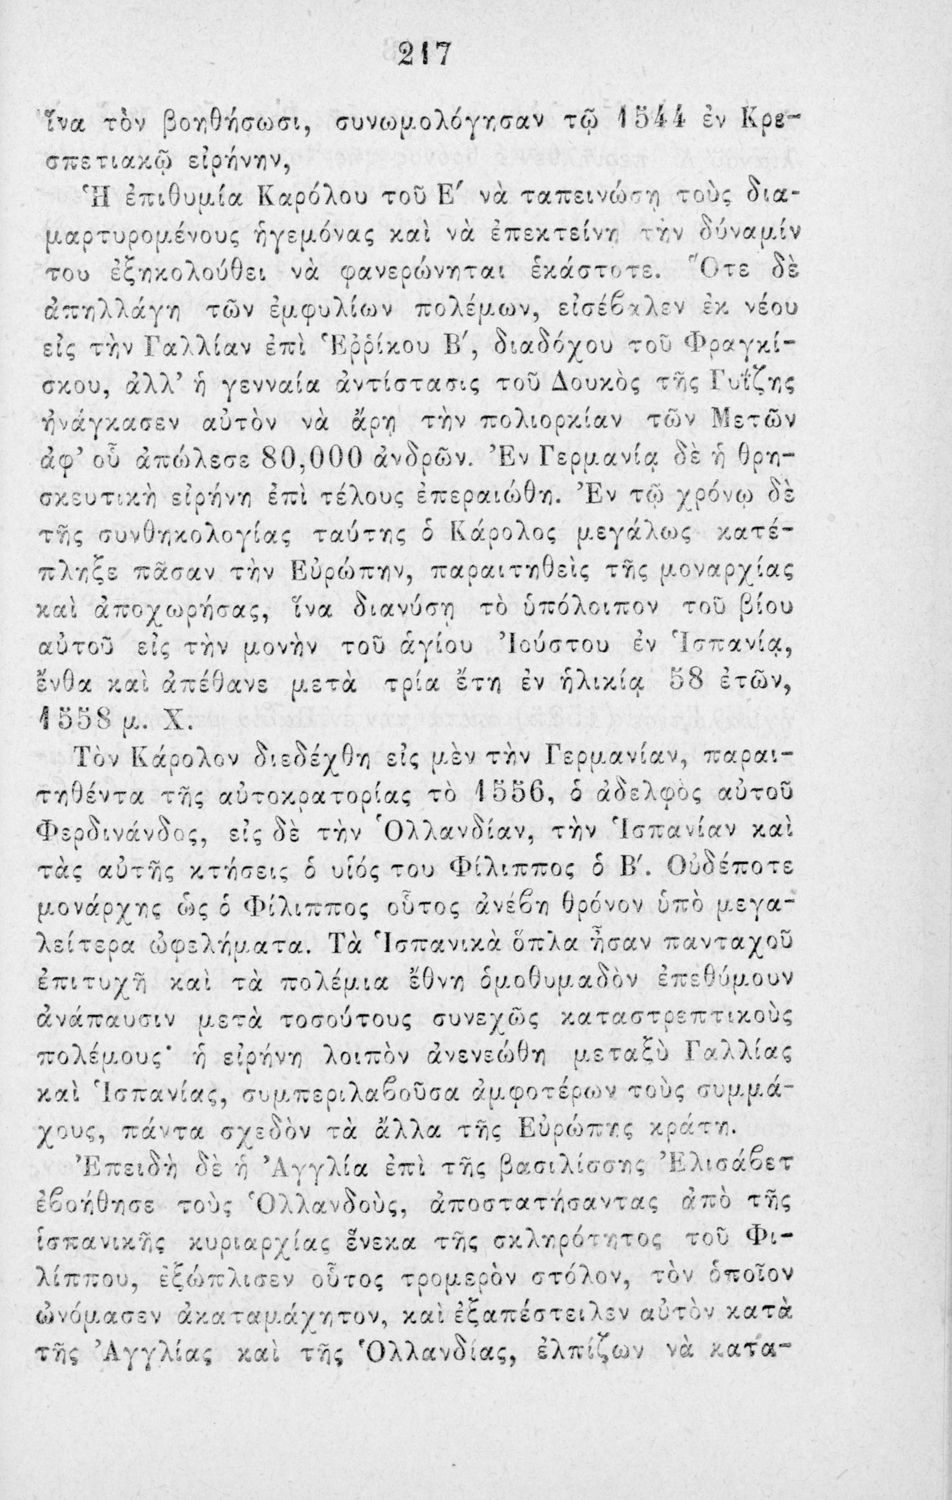 217
ἵνα τὸν βοηθήσωσι, συνωμολόγησαν τῷ 1544 ἐν Κρε-
σπετιακῷ εἰρήνην,
Ἡ ἐπιθυμία Καρόλου τοῦ Ε΄ νὰ ταπεινώσῃ τοὺς δια-
μαρτυρομένους ἡγεμόνας καὶ νὰ ἐπεκτείνῃ τὴν δύναμίν
του ἐξηκολούθει νὰ φανερώνηται ἑκάστοτε. Ὅτε δὲ
ἀπηλλάγη τῶν ἐμφυλίων πολέμων, εἰσέβαλεν ἐκ νέου
εἰς τὴν Γαλλίαν ἐπὶ Ἑῤῥίκου Β΄, διαδόχου τοῦ Φραγκί-
σκου, ἀλλ’ ἡ γενναία ἀντίστασις τοῦ Δουκὸς τῆς Γυΐζης
ἠνάγκασεν αὐτὸν νὰ ἄρῃ τὴν πολιορκίαν τῶν Μετῶν
ἀφ’ οὗ ἀπώλεσε 80,000 ἀνδρῶν. Ἐν Γερμανίᾳ δὲ ἡ θρη-
σκευτικὴ εἰρήνη ἐπὶ τέλους ἐπεραιώθη. Ἐν τῷ χρόνῳ δὲ
τῆς συνθηκολογίας ταύτης ὁ Κάρολος μεγάλως κατέ-
πληξε πᾶσαν τὴν Εὐρώπην, παραιτηθεὶς τῆς μοναρχίας
καὶ ἀποχωρήσας, ἵνα διανύσῃ τὸ ὑπόλοιπον τοῦ βίου
αὐτοῦ εἰς τὴν μονὴν τοῦ ἁγίου Ἰούστου ἐν Ἱσπανίᾳ,
ἔνθα καὶ ἀπέθανε μετὰ τρία ἔτη ἐν ἡλικίᾳ 58 ἐτῶν,
1558 μ. Χ.
Τὸν Κάρολον διεδέχθη εἰς μὲν τὴν Γερμανίαν, παραι-
τηθέντα τῆς αὐτοκρατορίας τὸ 1556, ὁ ἀδελφὸς αὐτοῦ
Φερδινάνδος, εἰς δὲ τὴν Ὁλλανδίαν, τὴν Ἱσπανίαν καὶ
τὰς αὐτῆς κτήσεις ὁ υἱός του Φίλιππος ὁ Β΄. Οὐδέποτε
μονάρχης ὡς ὁ Φίλιππος οὗτος ἀνέβη θρόνον ὑπὸ μεγα-
λείτερα ὠφελήματα. Τὰ Ἱσπανικὰ ὅπλα ἦσαν πανταχοῦ
ἐπιτυχῆ καὶ τὰ πολέμια ἔθνη ὁμοθυμαδὸν ἐπεθύμουν
ἀνάπαυσιν μετὰ τοσούτους συνεχῶς καταστρεπτικοὺς
πολέμους· ἡ εἰρήνη λοιπὸν ἀνενεώθη μεταξὺ Γαλλίας
καὶ Ἱσπανίας, συμπεριλαβοῦσα ἀμφοτέρων τοὺς συμμά-
χους, πάντα σχεδὸν τὰ ἄλλα τῆς Εὐρώπης κράτη.
Ἐπειδὴ δὲ ἡ Ἀγγλία ἐπὶ τῆς βασιλίσσης Ἐλισάβετ
ἐβοήθησε τοὺς Ὁλλανδοὺς, ἀποστατήσαντας ἀπὸ τῆς
ἱσπανικῆς κυριαρχίας ἕνεκα τῆς σκληρότητος τοῦ Φι-
λίππου, ἐξώπλισεν οὗτος τρομερὸν στόλον, τὸν ὁποῖον
ὠνόμασεν ἀκαταμάχητον, καὶ ἐξαπέστειλεν αὐτὸν κατὰ
τῆς Ἀγγλίας καὶ τῆς Ὁλλανδίας, ἐλπίζων νὰ κατα-